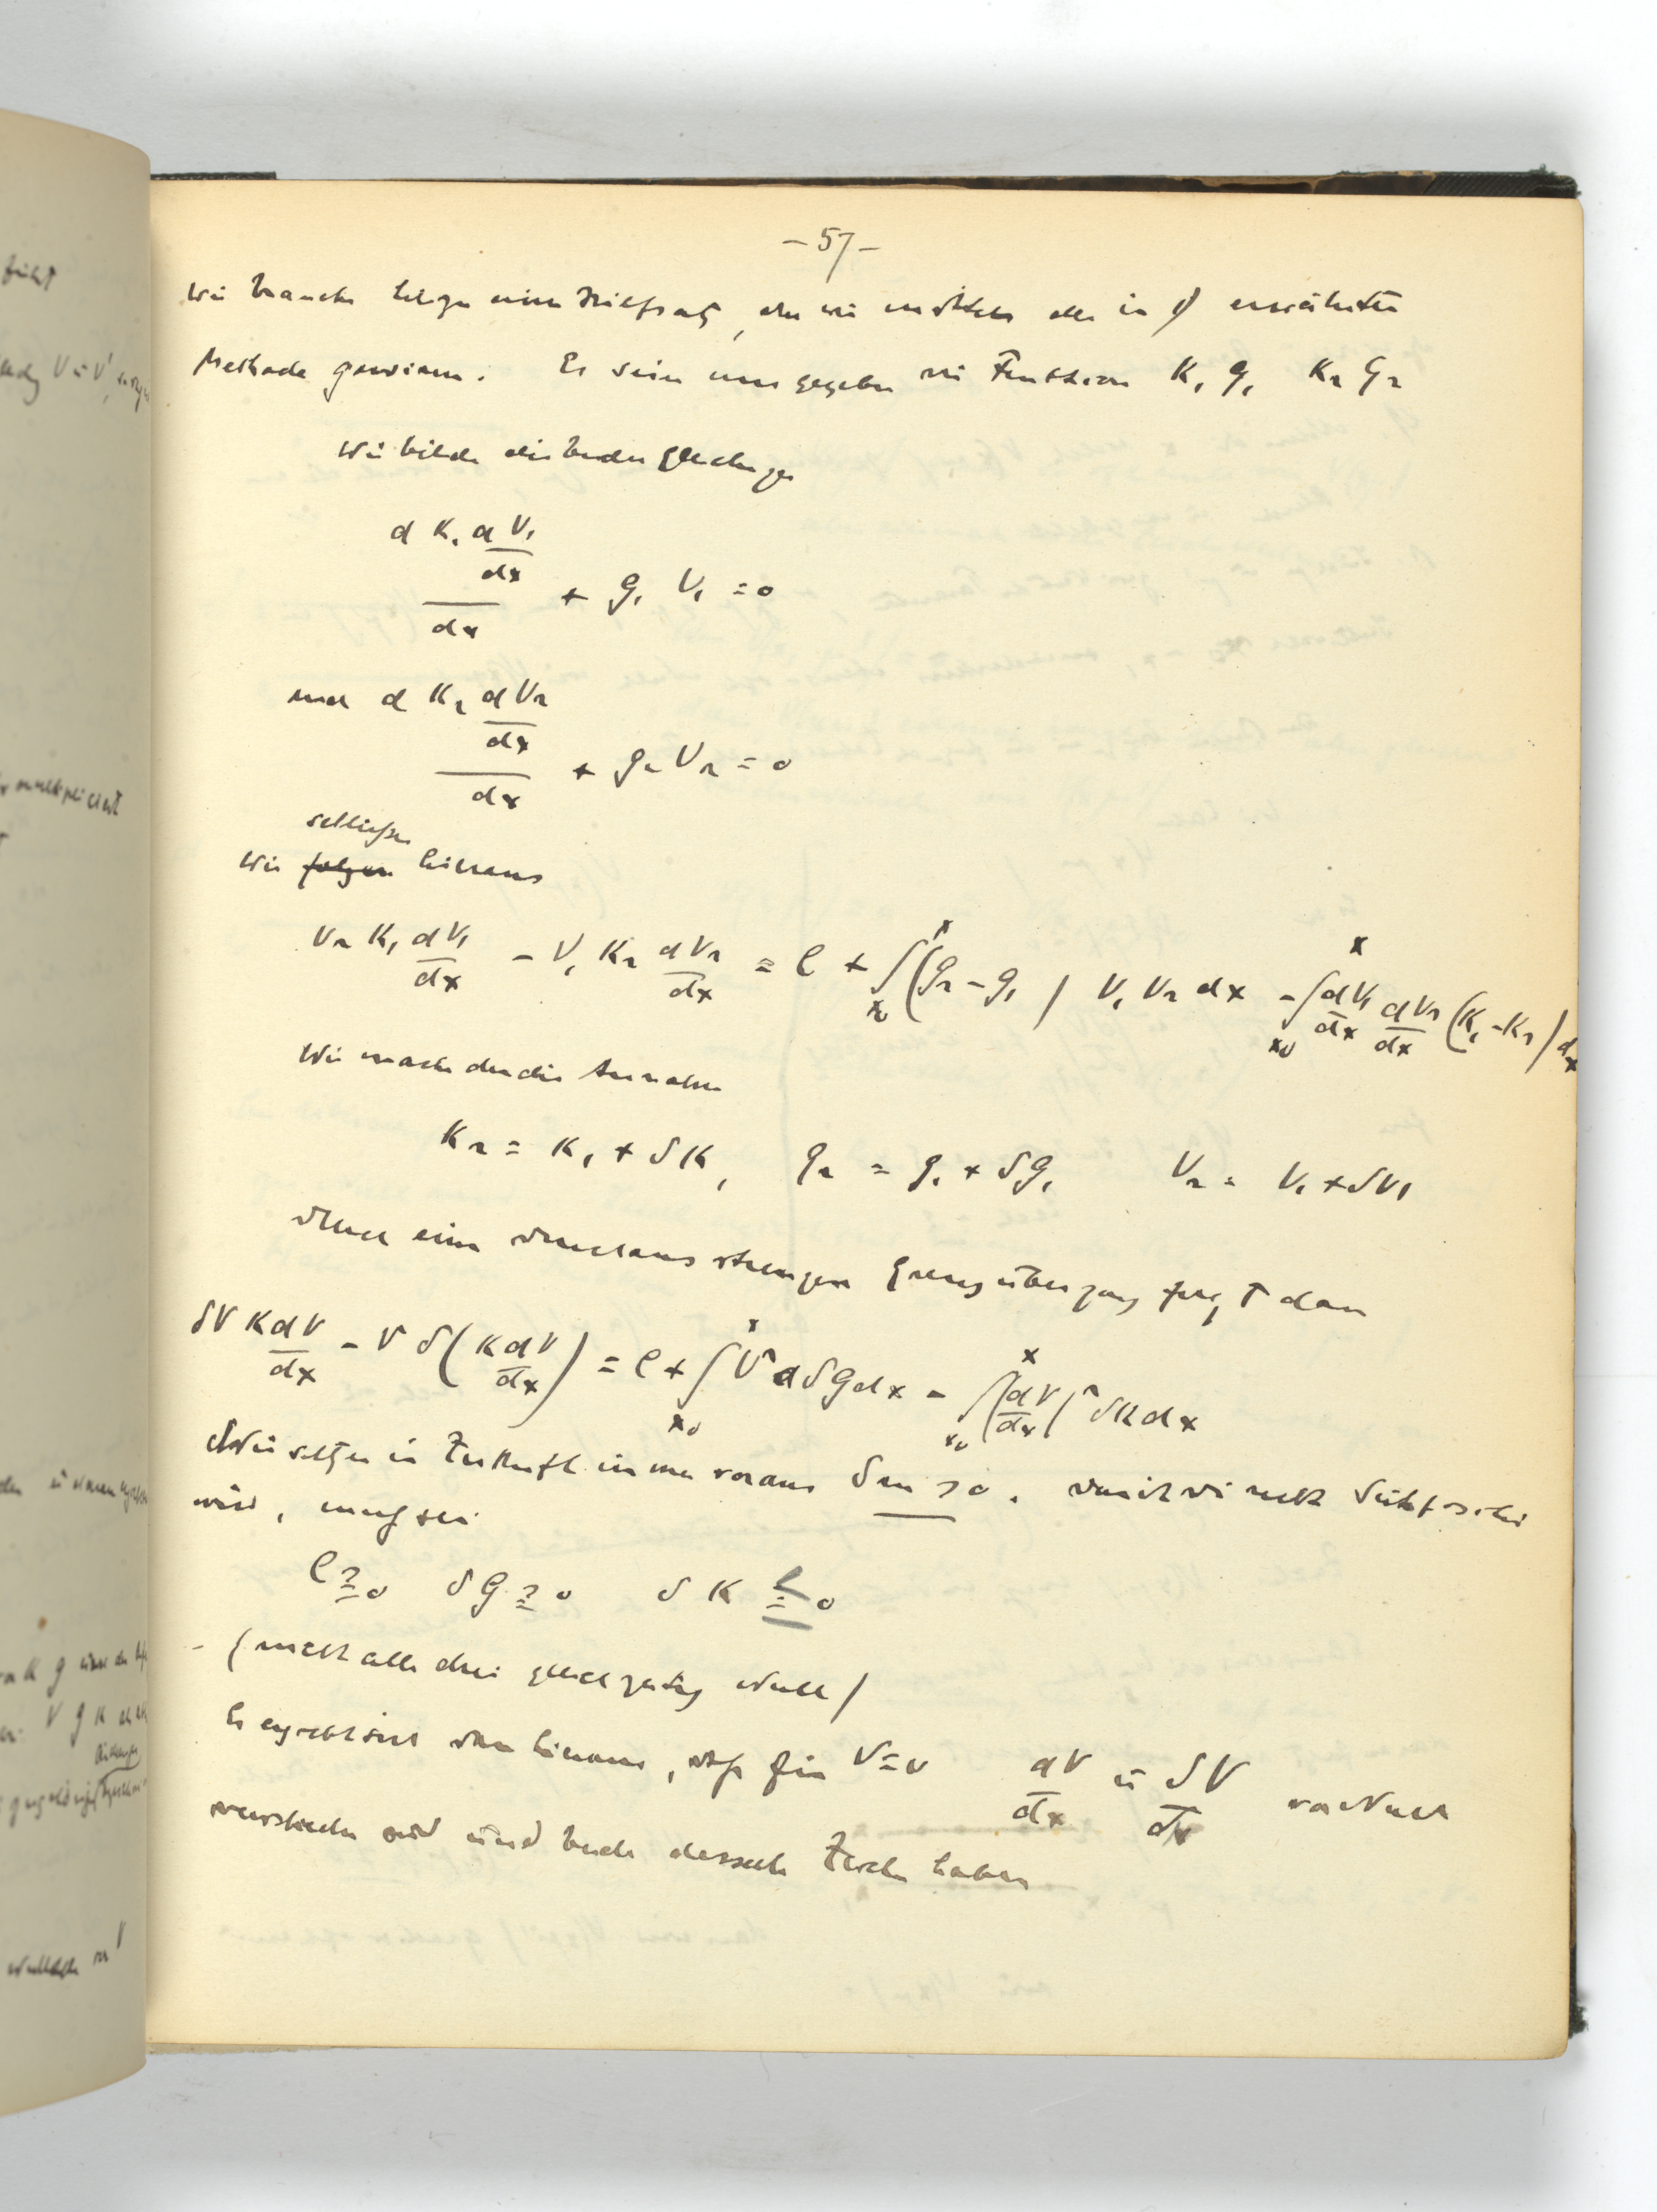 - 57 -
Wir brauchen hierzu einen Hilfssatz, den wir mittels der in 1) erwähnten
Methode gewinnen. Es seien uns gegeben die Funktionen K₁ g₁ K₂ g₂
Wir bilden die beiden Gleichungen
d K₁ dV₁/dx / dx + g₁ V₁ = 0
und d K₂ dV₂/dx / dx + g₂ V₂ = 0
schließen
Wir folgern hieraus
V₂ K₁ dV₁/dx - V₁ K₂ dV₂/dx = C + ∫ₓ₀ˣ (g₂ - g₁) V₁ V₂ dx - ∫ₓ₀ˣ dV₁/dx dV₂/dx (K₁ - K₂) dx
Wir machen die Annahme
K₂ = K₁ + δK, g₂ = g₁ + δg₁ V₂ = V₁ + δV₁
Durch einen durchaus strengen Grenzübergang folgt dann
δV K dV/dx - V δ(K dV/dx) = C + ∫ₓ₀ˣ V² δg dx - ∫ₓ₀ˣ (dV/dx)² δK dx
Wir setzen in Zukunft immer voraus > 0. nicht
wird, muß sei
C ≧ 0 δg ≧ 0 δK ≦ 0
(nicht alle drei gleichzeitig Null)
Es ergiebt sich dann hieraus, daß für V = 0 dV/dx u δV/dx von Null
verschieden sind und beide dasselbe Zeichen haben